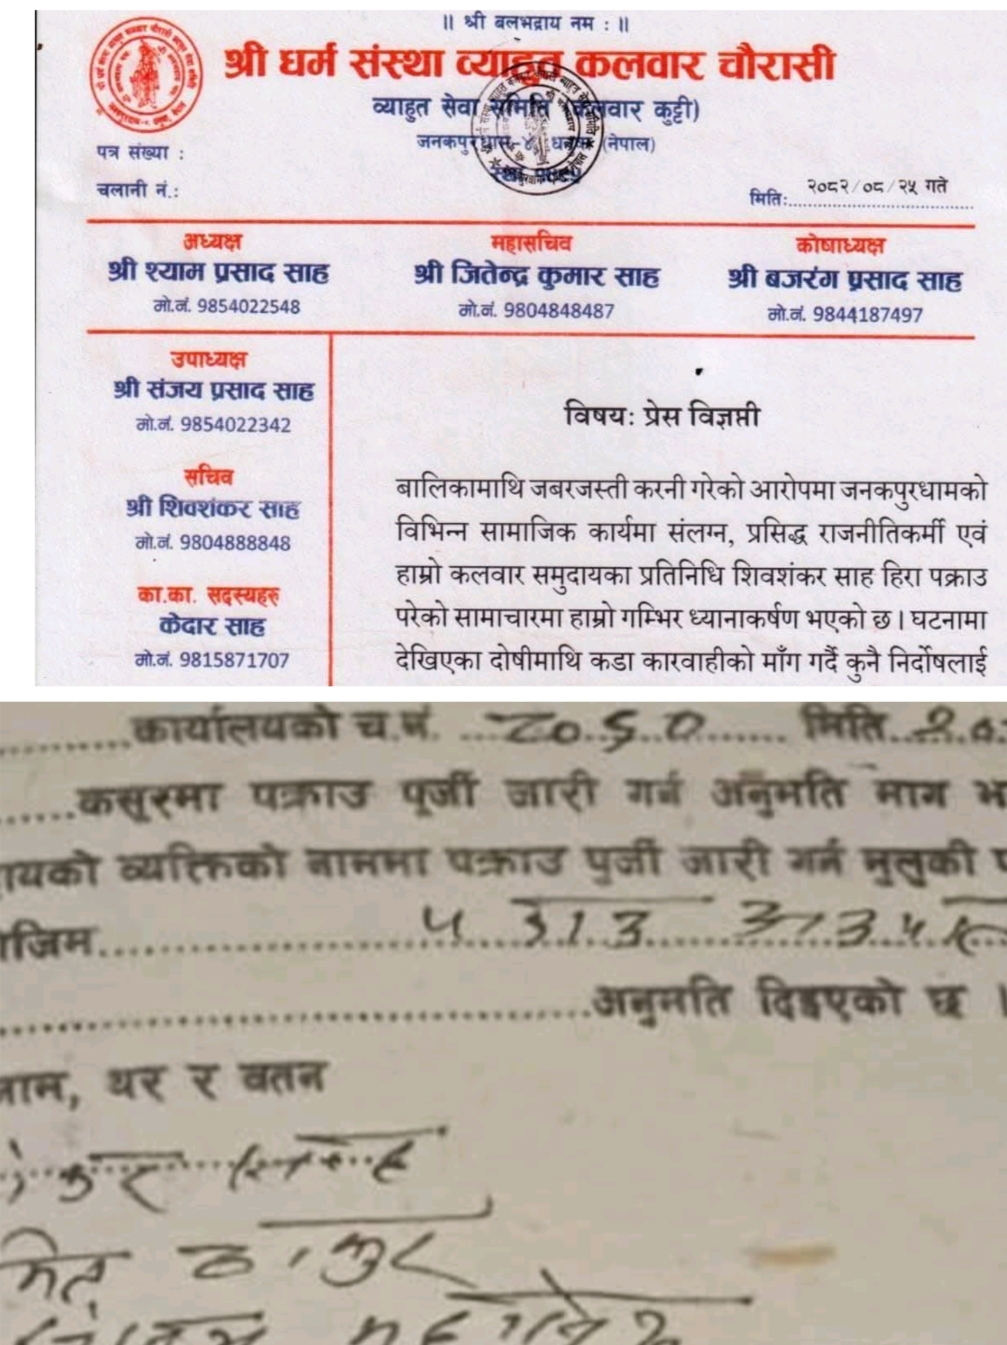 ॥ श्री बलभद्राय नम : ॥
श्री धर्म संस्था व्याहुत कलवार चौरासी
व्याहुत सेवा समिति (कलवार कुट्टी)
जनकपुरधाम-४, धनुषा (नेपाल)
पत्र संख्या :
चलानी नं.:
मिति: २०८२/०८/२५ गते
अध्यक्ष
श्री श्याम प्रसाद साह
मो.नं. 9854022548
महासचिव
श्री जितेन्द्र कुमार साह
मो.नं. 9804848487
कोषाध्यक्ष
श्री बजरंग प्रसाद साह
मो.नं. 9844187497
उपाध्यक्ष
श्री संजय प्रसाद साह
मो.नं. 9854022342
सचिव
श्री शिवशंकर साह
मो.नं. 9804888848
का.का. सदस्यहरु
केदार साह
मो.नं. 9815871707
विषय: प्रेस विज्ञप्ती
बालिकामाथि जबरजस्ती करनी गरेको आरोपमा जनकपुरधामको
विभिन्न सामाजिक कार्यमा संलग्न, प्रसिद्ध राजनीतिकर्मी एवं
हाम्रो कलवार समुदायका प्रतिनिधि शिवशंकर साह हिरा पक्राउ
परेको सामाचारमा हाम्रो गम्भिर ध्यानाकर्षण भएको छ । घटनामा
देखिएका दोषीमाथि कडा कारवाहीको माँग गर्दै कुनै निर्दोषलाई
कार्यालयको च.नं. मिति
कसूरमा पक्राउ पूर्जी जारी गर्न अनुमति माग
व्यक्तिको नाममा पक्राउ पुर्जी जारी गर्न मुलुकी
अनुमति दिइएको छ ।
नाम, थर र वतन